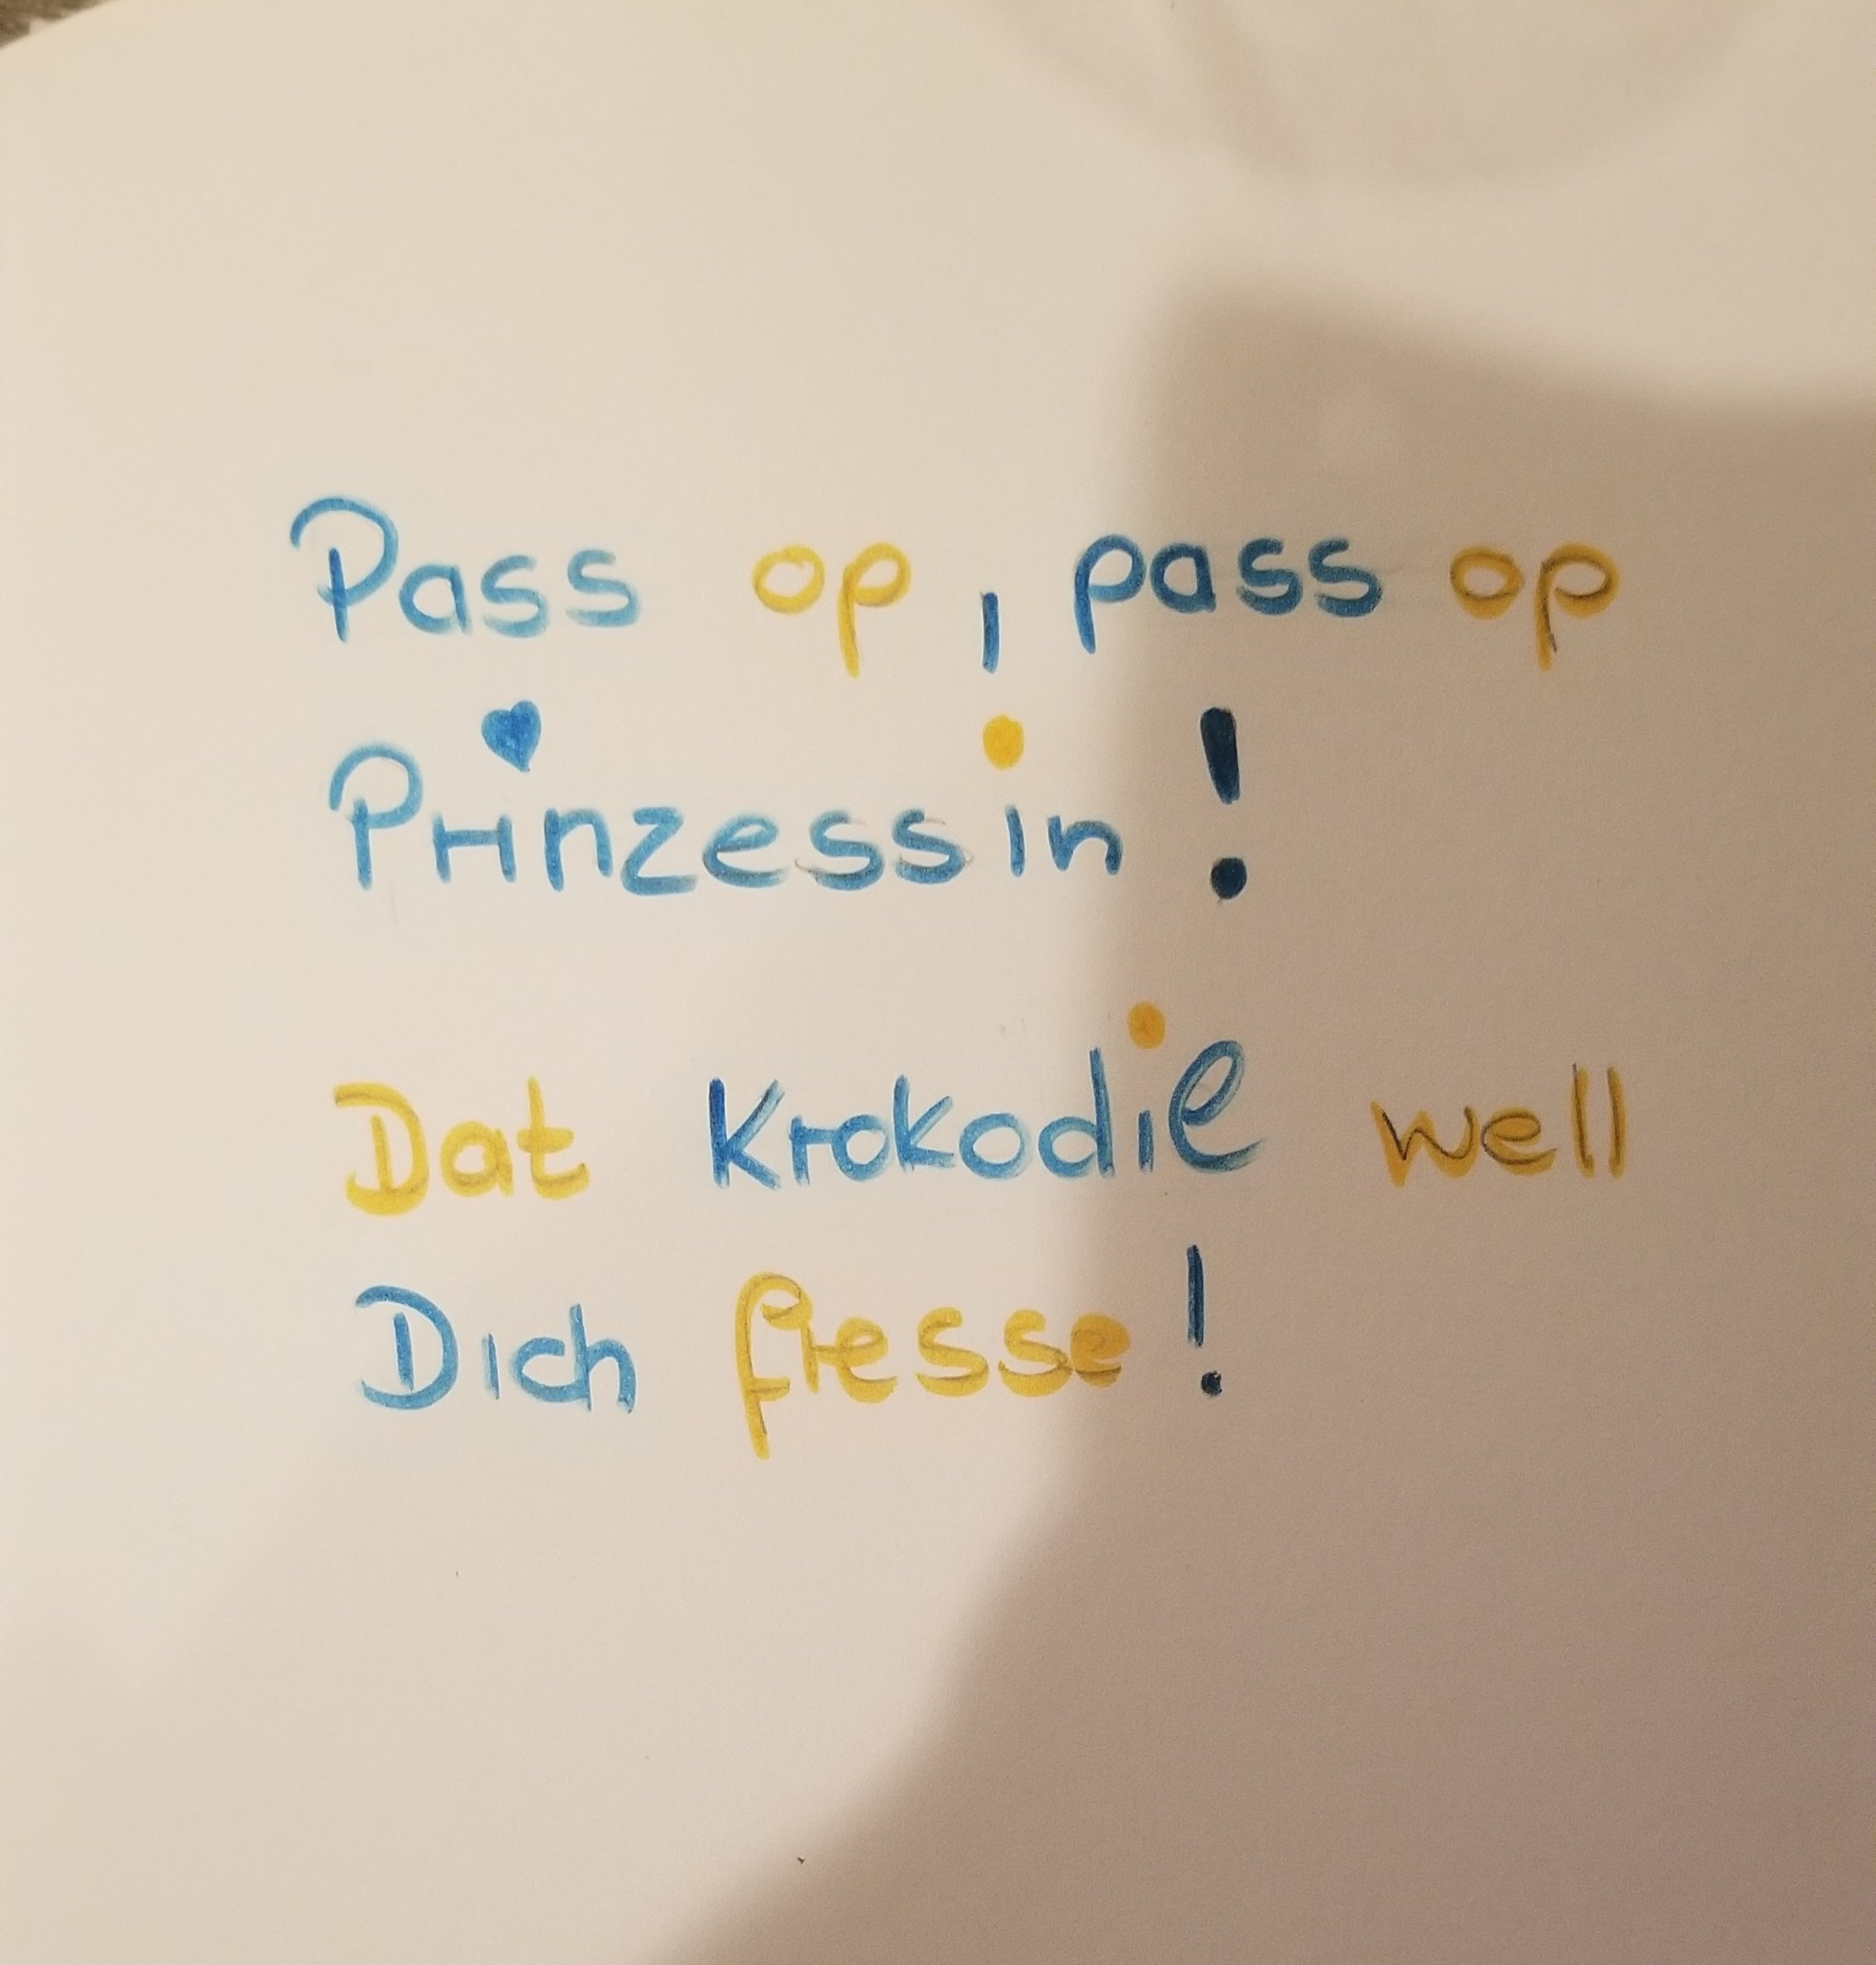 Pass op, pass op
Prinzessin!
Dat Krokodil well
Dich fresse!